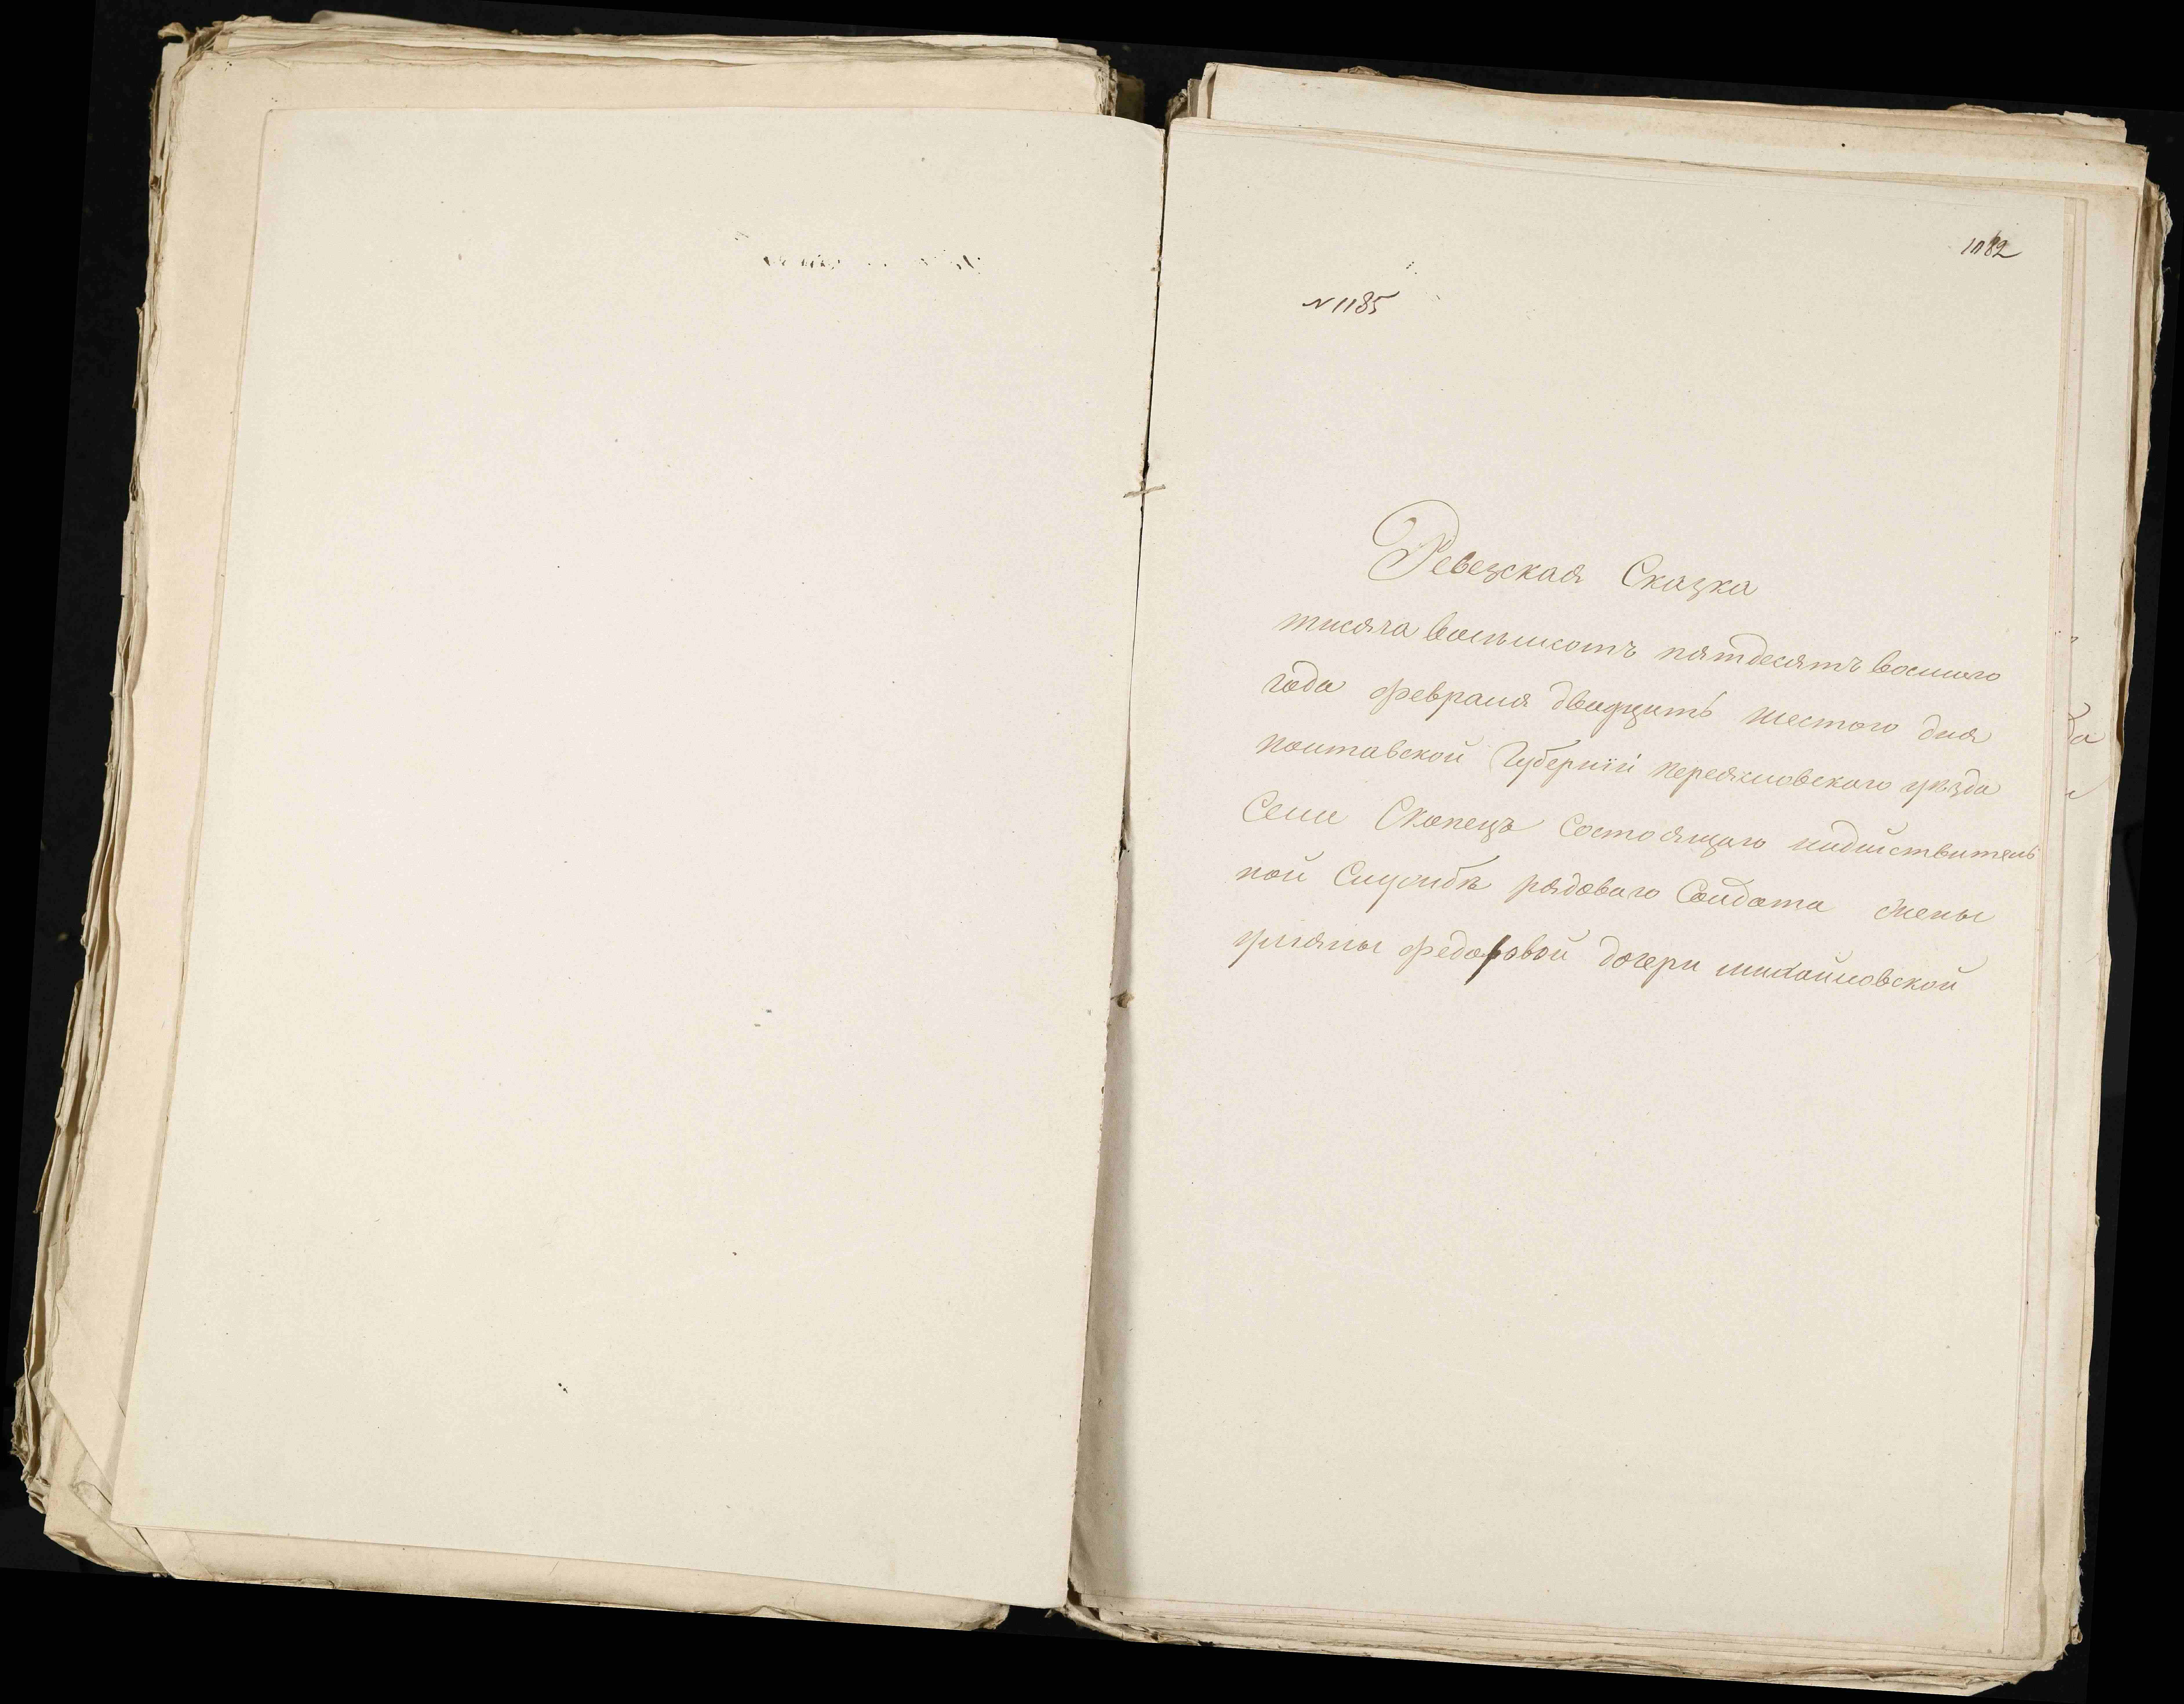 1082
N 1185
Ревезская Сказка
тисяча восьмсотъ пятдесятъ восмого
года февраля двадцать шестого дня
полтавской Губерніи переясловского уезда
Села Скопецъ Состоящого надействитель
ной Службе рядоваго Солдата жены
улияны федоровой дочери михайловской